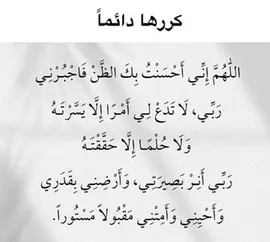 كررها دائماً
اللّهُمَّ إِنِّي أَحْسَنْتُ بِكَ الظَّنْ فَاجْبُرْنِي
رَبِّي، لَا تَدَعْ لِي أَمْرًا إِلَّا يَسَّرْتَهُ
وَلَا حُلْمًـا إِلَّا حَقَّقْتَهُ
رَبِّي أَنِرْ بَصِيرَتِي، وَأَرْضِنِي بِقَدَرِي
وَأَحْيِنِي وَأَمِتْنِي مَقْبُولاً مَسْتُوراً.